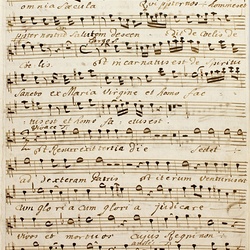 omnia Secula Qui propter nos homines et
propter nostra Salutem descen dit de Coelis de
Largo
Coe lis Et in carnatus est de Spiritu
Sancto ex Maria Virgine et homo fac
tus est et homo fac tus est
Vivace
Et Resurrexit tertia die Sedet
ad dexteram Patris Et iterum venturus est
cum glori a cum glori a judicare
vivos et mortuos Cujus Regni non